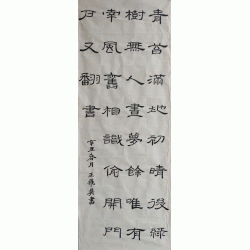 青苔滿地初晴後綠
樹無人晝夢餘唯有
南風舊相識偷開門
戶又翻書
辛丑春月 書